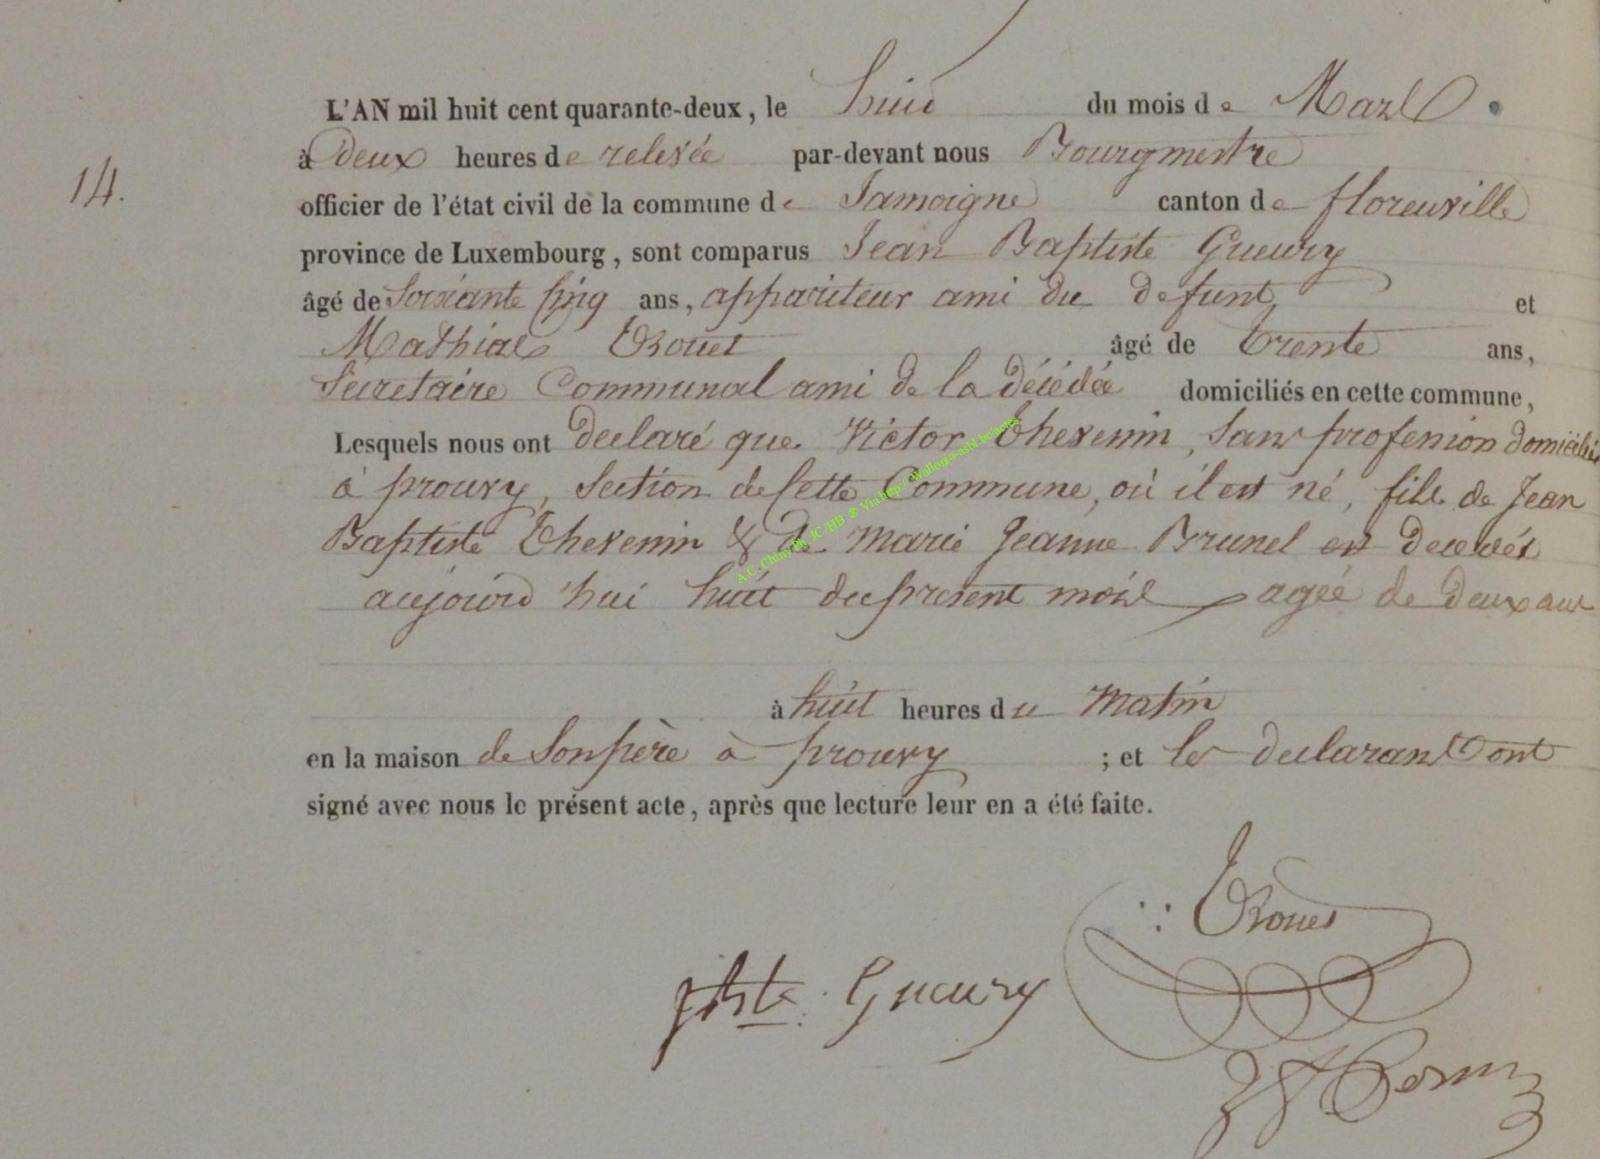 L'AN mil huit cent quarante-deux, le huit du mois de Mars
14.
à deux heures de relevée par-devant nous Bourgmestre
officier de l'état civil de la commune de Jamoigne canton de florenville
province de Luxembourg, sont comparus Jean Baptiste Gueury
âgé de Soixante Cinq ans, appariteur ami du defunt, et
Mathias âgé de trente ans,
Secretaire Communal ami de la décédée domiciliés en cette commune,
Lesquels nous ont declaré que Victor Thevenin, sans profession domicilié
à prouvy, section de Cette Commune, où il est né, fils de Jean
Baptiste Thevenin & de marie Jeanne Brunel est decedés
aujourd'hui huit du présent mois agée de deux ans
à huit heures du Matin
en la maison de Son père à prouvy ; et les declarants ont
signé avec nous le présent acte, après que lecture leur en a été faite.
Gueury